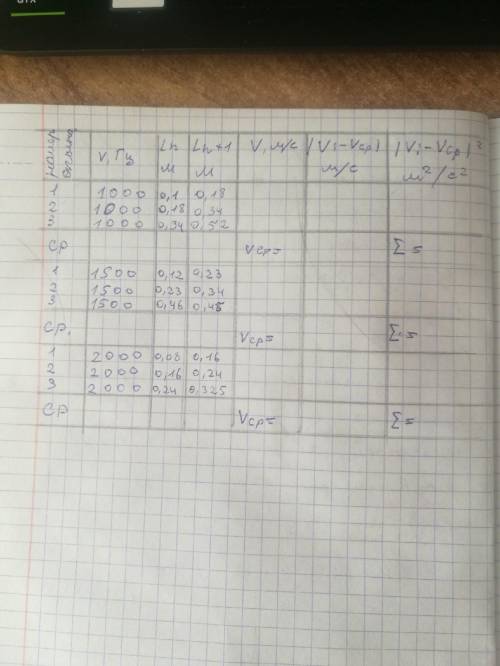 номер опыта ν, Гц Ln м Ln+1 м V, м/с |Vi-Vср| м/с |Vi-Vср|² м²/с²
1 1000 0,1 0,18
2 1000 0,18 0,34
3 1000 0,34 0,52
ср Vср= Σ=
1 1500 0,12 0,23
2 1500 0,23 0,34
3 1500 0,46 0,45
ср. Vср= Σ=
1 2000 0,08 0,16
2 2000 0,16 0,24
3 2000 0,24 0,325
ср Vср= Σ=